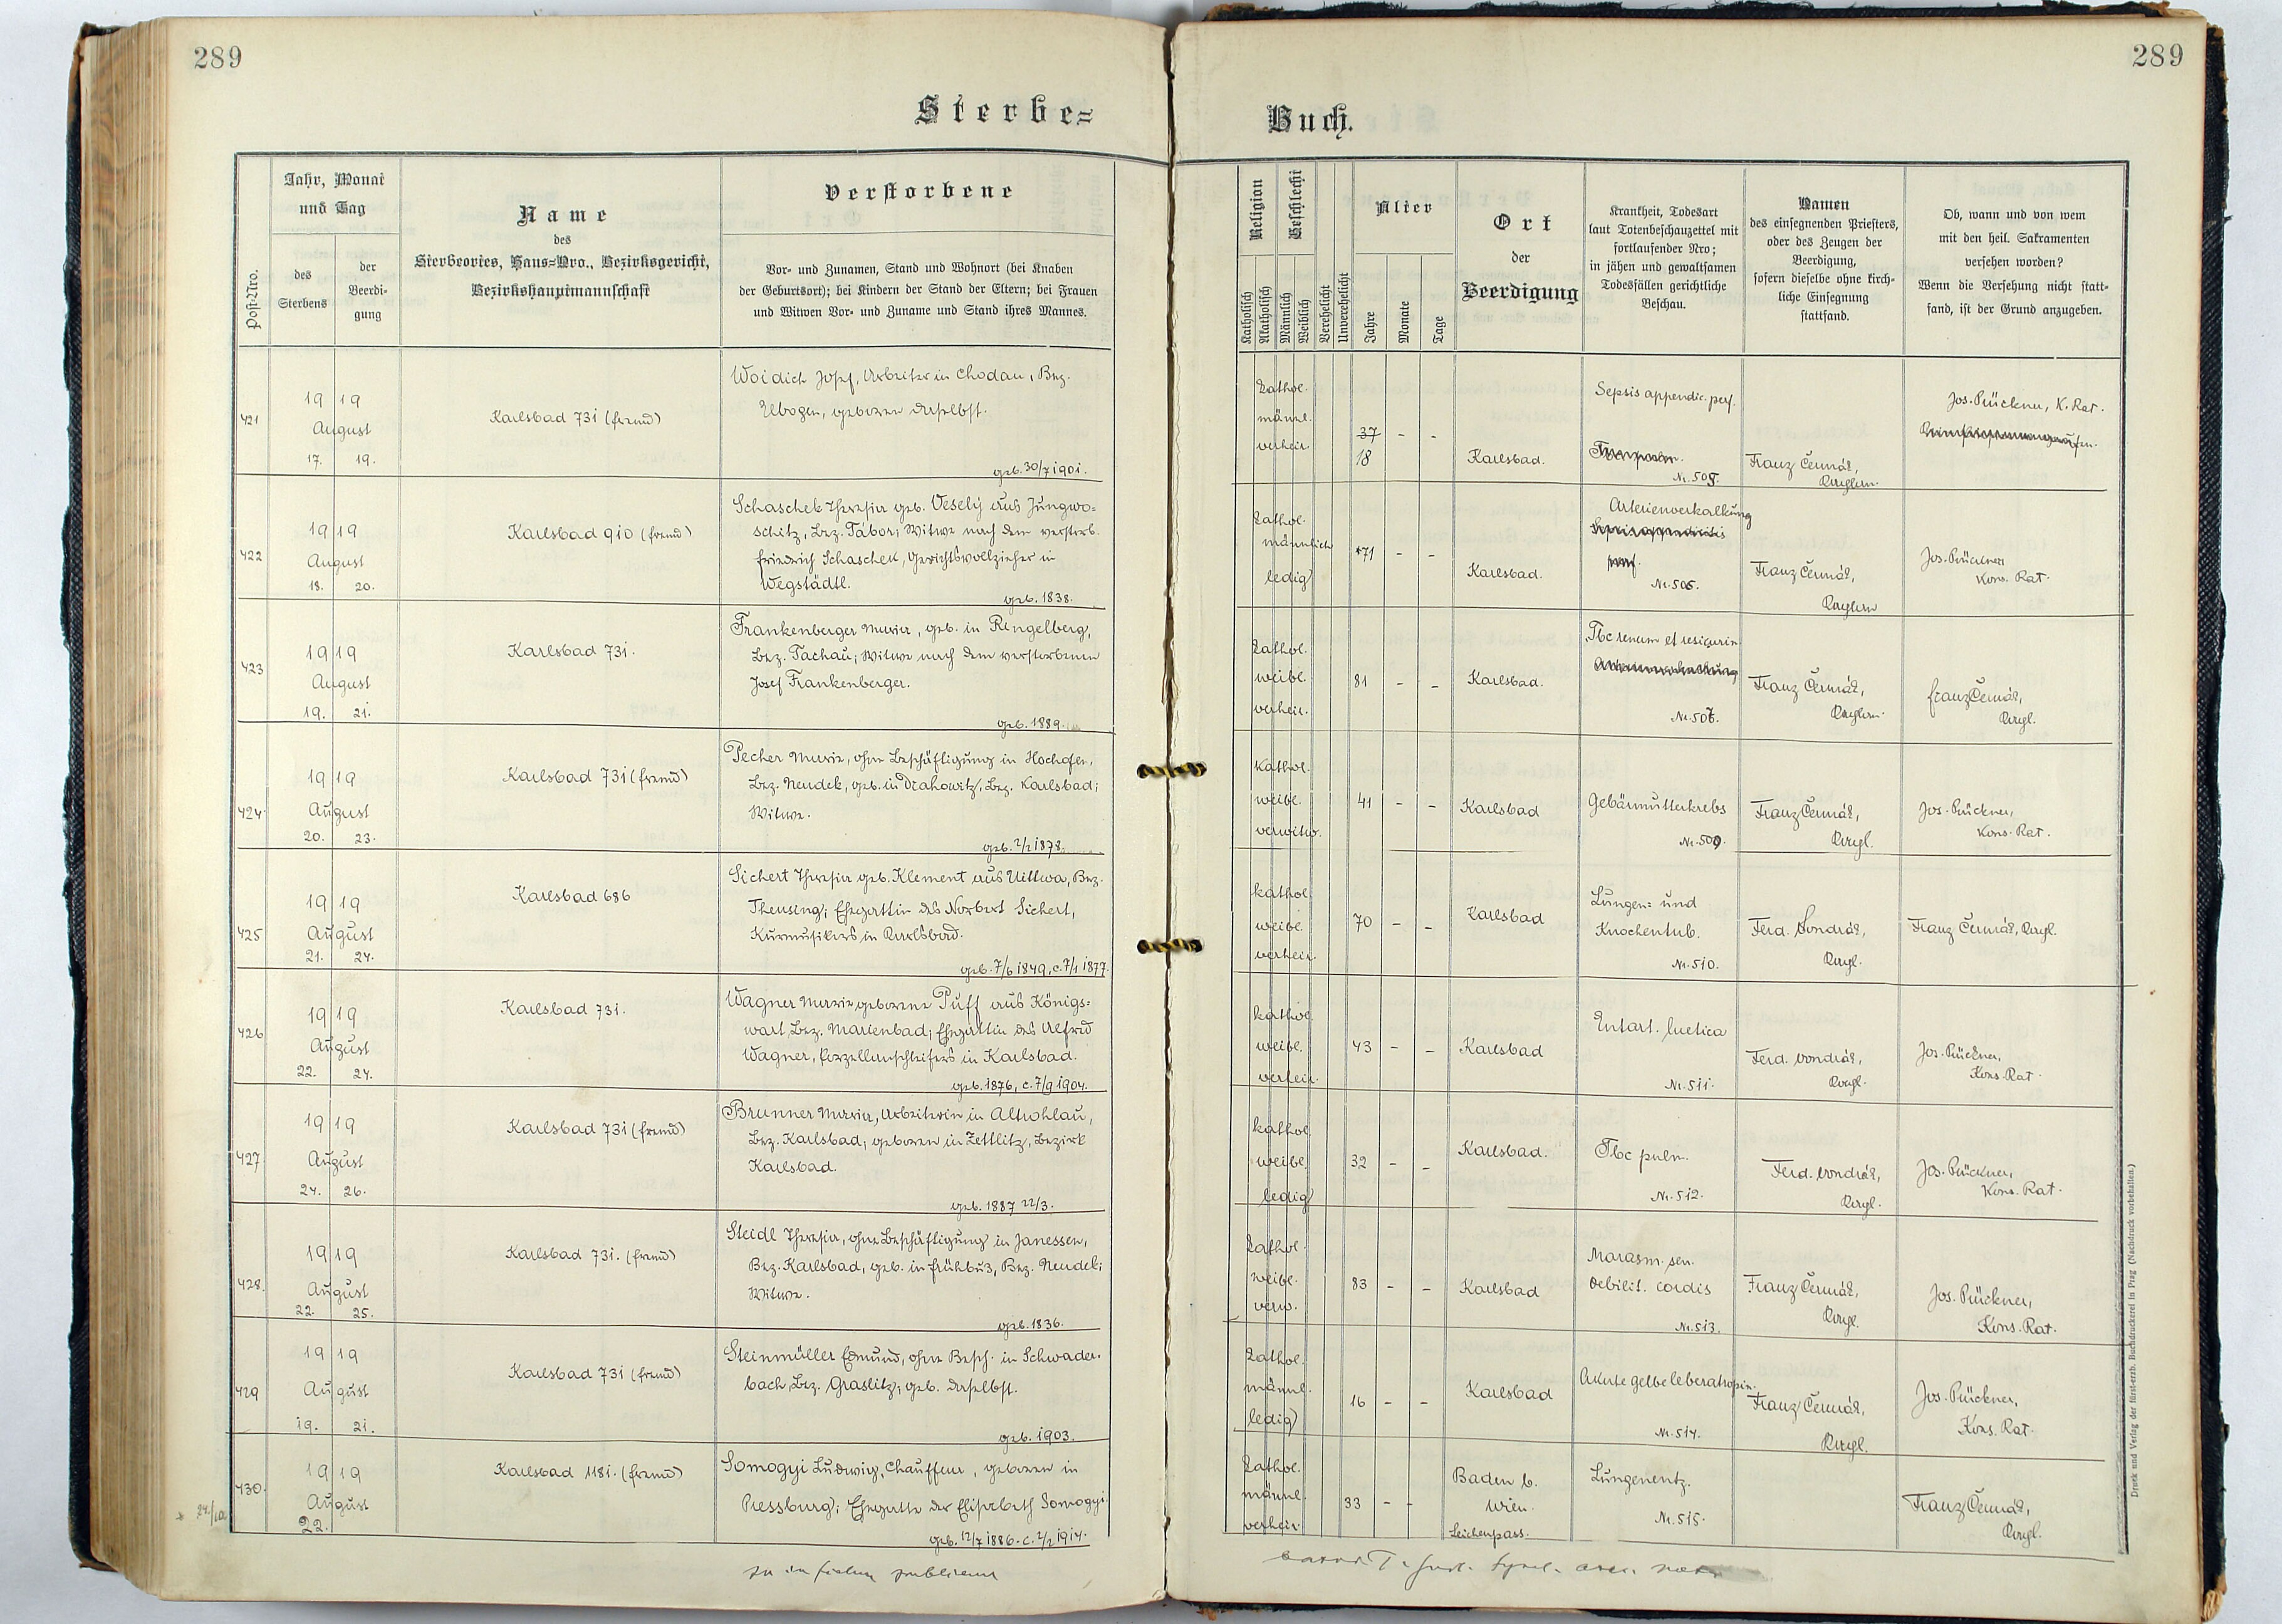 289
289
Sterbe=
Buch.
Post-Nro.
Jahr, Monat
und Tag
des
Sterbens
der
Beerdi-
gung
Name
des
Sterbeortes, Haus=Nro., Bezirksgericht,
Bezirkshauptmannschaft
Verstorbene
Vor- und Zunamen, Stand und Wohnort (bei Knaben
der Geburtsort); bei Kindern der Stand der Eltern; bei Frauen
und Witwen Vor- und Zuname und Stand ihres Mannes.
Religion
Geschlecht
Katholisch
Akatholisch
Männlich
Weiblich
Verehelicht
Unverehelicht
Alter
Jahre
Monate
Tage
Ort
der
Beerdigung
Krankheit, Todesart
laut Totenbeschauzettel mit
fortlaufender Nro;
in jähen und gewaltsamen
Todesfällen gerichtliche
Beschau.
Namen
des einsegnenden Priesters,
oder des Zeugen der
Beerdigung,
sofern dieselbe ohne kirch-
liche Einsegnung
stattfand.
Ob, wann und von wem
mit den heil. Sakramenten
versehen worden?
Wenn die Versehung nicht statt-
fand, ist der Grund anzugeben.
421
19 19
August
17. 19.
Karlsbad 731 (fremd)
Woidich Josef, Arbeiter in Chodau, Bez.
Elbogen, geboren daselbst.
geb. 30/7 1901.
kathol.
männl.
verheir.
37 - -
18
Karlsbad.
Sepsis appendic. perf.
Nr. 505.
Franz Čermák,
Jos. Prückner, K. Rat.
422
19 19
August
18. 20.
Karlsbad 910 (fremd)
Schaschek Theresia geb. Veselý aus Jungwo=
schitz, Bez. Tábor; Witwe nach dem verstorb.
Friedrich Schaschek, Gerichtsvollzieher in
Wegstädtl.
geb. 1838.
kathol.
männlich
ledig
71 - -
Karlsbad.
Arterienverkalkung
Sepsis appendicitis
perf.
Nr. 506.
Franz Čermák,
Jos. Prückner
Kons. Rat.
423
19 19
August
19. 21.
Karlsbad 731.
Frankenberger Maria, geb. in Ringelberg,
Bez. Tachau; Witwe nach dem verstorbenen
Josef Frankenberger.
geb. 1889.
kathol.
weibl.
verheir.
81 - -
Karlsbad.
Tbc renum et
Nr. 507.
Franz Čermák,
Franz Čermák,
424.
19 19
August
20. 23.
Karlsbad 731 (fremd)
Pecher Maria, ohne Beschäftigung in Hochofen,
Bez. Neudek, geb. in Drahowitz, Bez. Karlsbad;
Witwe.
geb. 2/2 1878.
kathol.
weibl.
verwitw.
41 - -
Karlsbad
Gebärmutterkrebs
Nr. 509.
Franz Čermák,
Jos. Prückner,
Kons. Rat.
425
19 19
August
21. 24.
Karlsbad 686
Sichert Theresia geb. Klement aus Uittwa, Bez.
Theusing; Ehegattin des Norbert Sichert,
Kurmusikers in Karlsbad.
geb. 7/6 1849, c. 7/1 1877.
kathol.
weibl.
verheir.
70 - -
Karlsbad
Lungen= und
Knochentub.
Nr. 510.
Ferd. Vondrák,
Franz Čermák,
426
19 19
August
22. 24.
Karlsbad 731.
Wagner Maria geborene Puff aus Königs=
wart, Bez. Marienbad; Ehegattin des Alfred
Wagner, Porzellanschleifers in Karlsbad.
geb. 1876, c. 7/9 1904.
kathol.
weibl.
verheir.
43 - -
Karlsbad
Entart. luetica
Nr. 511.
Ferd. Vondrák,
Jos. Prückner,
Kons. Rat.
427
19 19
August
24. 26.
Karlsbad 731 (fremd)
Brunner Maria, Arbeiterin in Altrohlau,
Bez. Karlsbad, geboren in Zettlitz, Bezirk
Karlsbad.
geb. 1887 22/3.
kathol.
weibl.
ledig
32 - -
Karlsbad.
Tbc pulm.
Nr. 512.
Ferd. Vondrák,
Jos. Prückner,
Kons. Rat.
428.
19 19
August
22. 25.
Karlsbad 731. (fremd)
Steidl Theresia, ohne Beschäftigung in Janessen,
Bez. Karlsbad, geb. in Frühbuß, Bez. Neudek;
Witwe.
geb. 1836.
kathol.
weibl.
verw.
83 - -
Karlsbad
Marasm. sen.
Debilit. cordis
Nr. 513.
Franz Čermák,
Jos. Prückner,
Kons. Rat.
429
19 19
August
19. 21.
Karlsbad 731 (fremd)
Steinmüller Edmund, ohne Besch. in Schwader-
bach, Bez. Graslitz; geb. daselbst.
geb. 1903.
kathol.
männl.
ledig
16 - -
Karlsbad
Akute gelbe Leberatropie.
Nr. 514.
Franz Čermák,
Jos. Prückner,
Kons. Rat.
430.
19 19
August
22.
Karlsbad 1181. (fremd)
Somogyi Ludwig, Chauffeur, geboren in
Pressburg; Ehegatte der Elisabeth Somogyi.
geb. 12/7 1886. c. 2/2 1914.
kathol.
männl.
verheir.
33 - -
Baden b.
Wien.
Leichenpass.
Lungenentz.
Nr. 515.
Franz Čermák,
Druck und Verlag der fürst-erzb. Buchdruckerei in Prag (Nachdruck vorbehalten.)